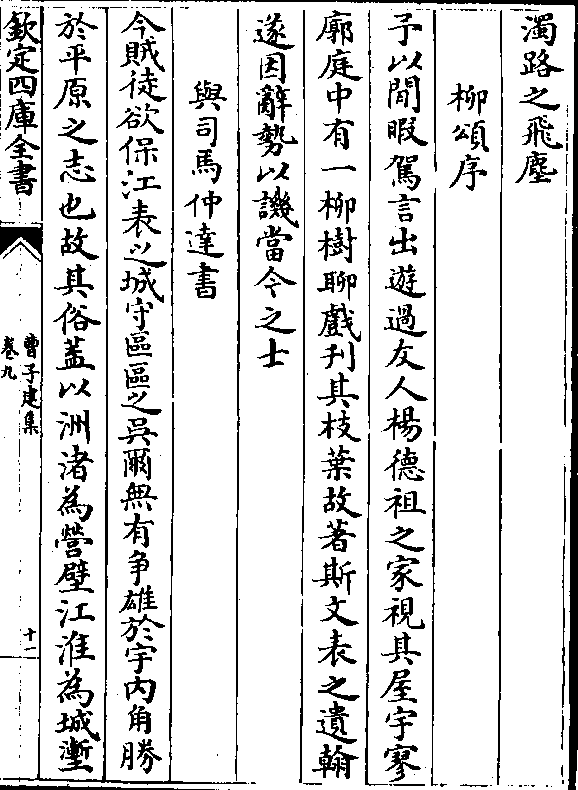 濁路之飛塵
柳頌序
予以閒暇駕言出遊過友人楊德祖之家視其屋宇寥
廓庭中有一柳樹聊戲刊其枝葉故著斯文表之遺翰
遂因辭勢以譏當今之士
與司馬仲達書
今賊徒欲保江表之城守區區之吳爾無有争雄於宇内角勝
於平原之志也故其俗蓋以洲渚為營壁江淮為城壍
欽定四庫全書
曹子建集
卷九
十一